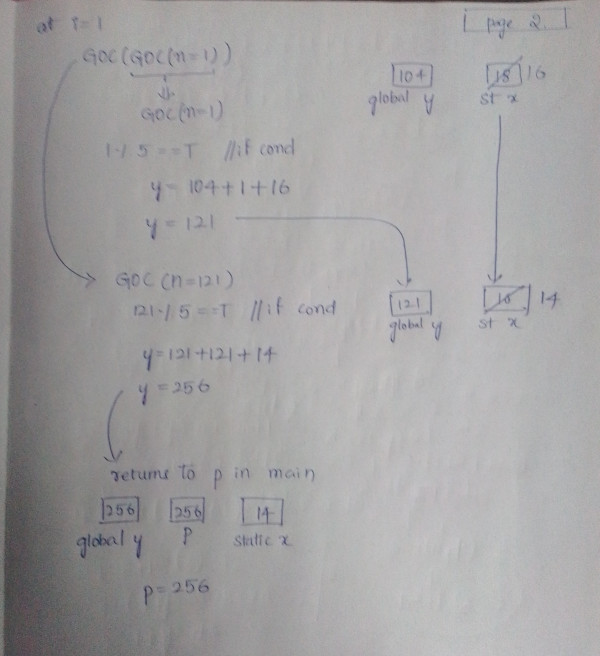 at i=1
page 2.
GOC(GOC(n=1))
GOC(n=1)
104
18 16
global y
st x
1 % 5 == T //if cond
y = 104+1+16
y = 121
GOC (n=121)
121 % 5 == T //if cond
121
16 14
global y
st x
y = 121+121+14
y = 256
returns to p in main
256 256 14
global y P static x
p = 256